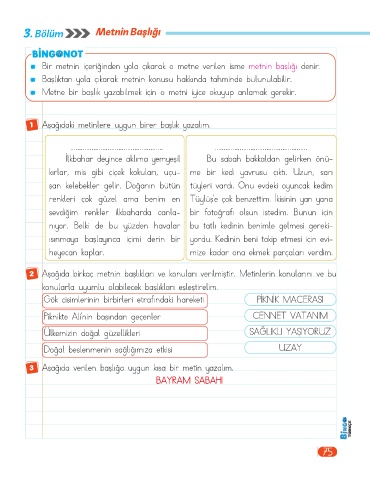 3. Bölüm Metnin Başlığı
BİNGONOT
Bir metnin içeriğinden yola çıkarak o metne verilen isme metnin başlığı denir.
Başlıktan yola çıkarak metnin konusu hakkında tahminde bulunulabilir.
Metne bir başlık yazabilmek için o metni iyice okuyup anlamak gerekir.
1 Aşağıdaki metinlere uygun birer başlık yazalım.
İlkbahar deyince aklıma yemyeşil
kırlar, mis gibi çiçek kokuları, uçu-
şan kelebekler gelir. Doğanın bütün
renkleri çok güzel ama benim en
sevdiğim renkler ilkbaharda canla-
nıyor. Belki de bu yüzden havalar
ısınmaya başlayınca içimi derin bir
heyecan kaplar.
Bu sabah bakkaldan gelirken önü-
me bir kedi yavrusu çıktı. Uzun, sarı
tüyleri vardı. Onu evdeki oyuncak kedim
Tüylüş'e çok benzettim. İkisinin yan yana
bir fotoğrafı olsun istedim. Bunun için
bu tatlı kedinin benimle gelmesi gereki-
yordu. Kedinin beni takip etmesi için evi-
mize kadar ona ekmek parçaları verdim.
2 Aşağıda birkaç metnin başlıkları ve konuları verilmiştir. Metinlerin konularını ve bu
konularla uyumlu olabilecek başlıkları eşleştirelim.
Gök cisimlerinin birbirleri etrafındaki hareketi
PİKNİK MACERASI
Piknikte Ali'nin başından geçenler
CENNET VATANIM
Ülkemizin doğal güzellikleri
SAĞLIKLI YAŞIYORUZ
Doğal beslenmenin sağlığımıza etkisi
UZAY
3 Aşağıda verilen başlığa uygun kısa bir metin yazalım.
BAYRAM SABAHI
BİNGO
TÜRKÇE
75